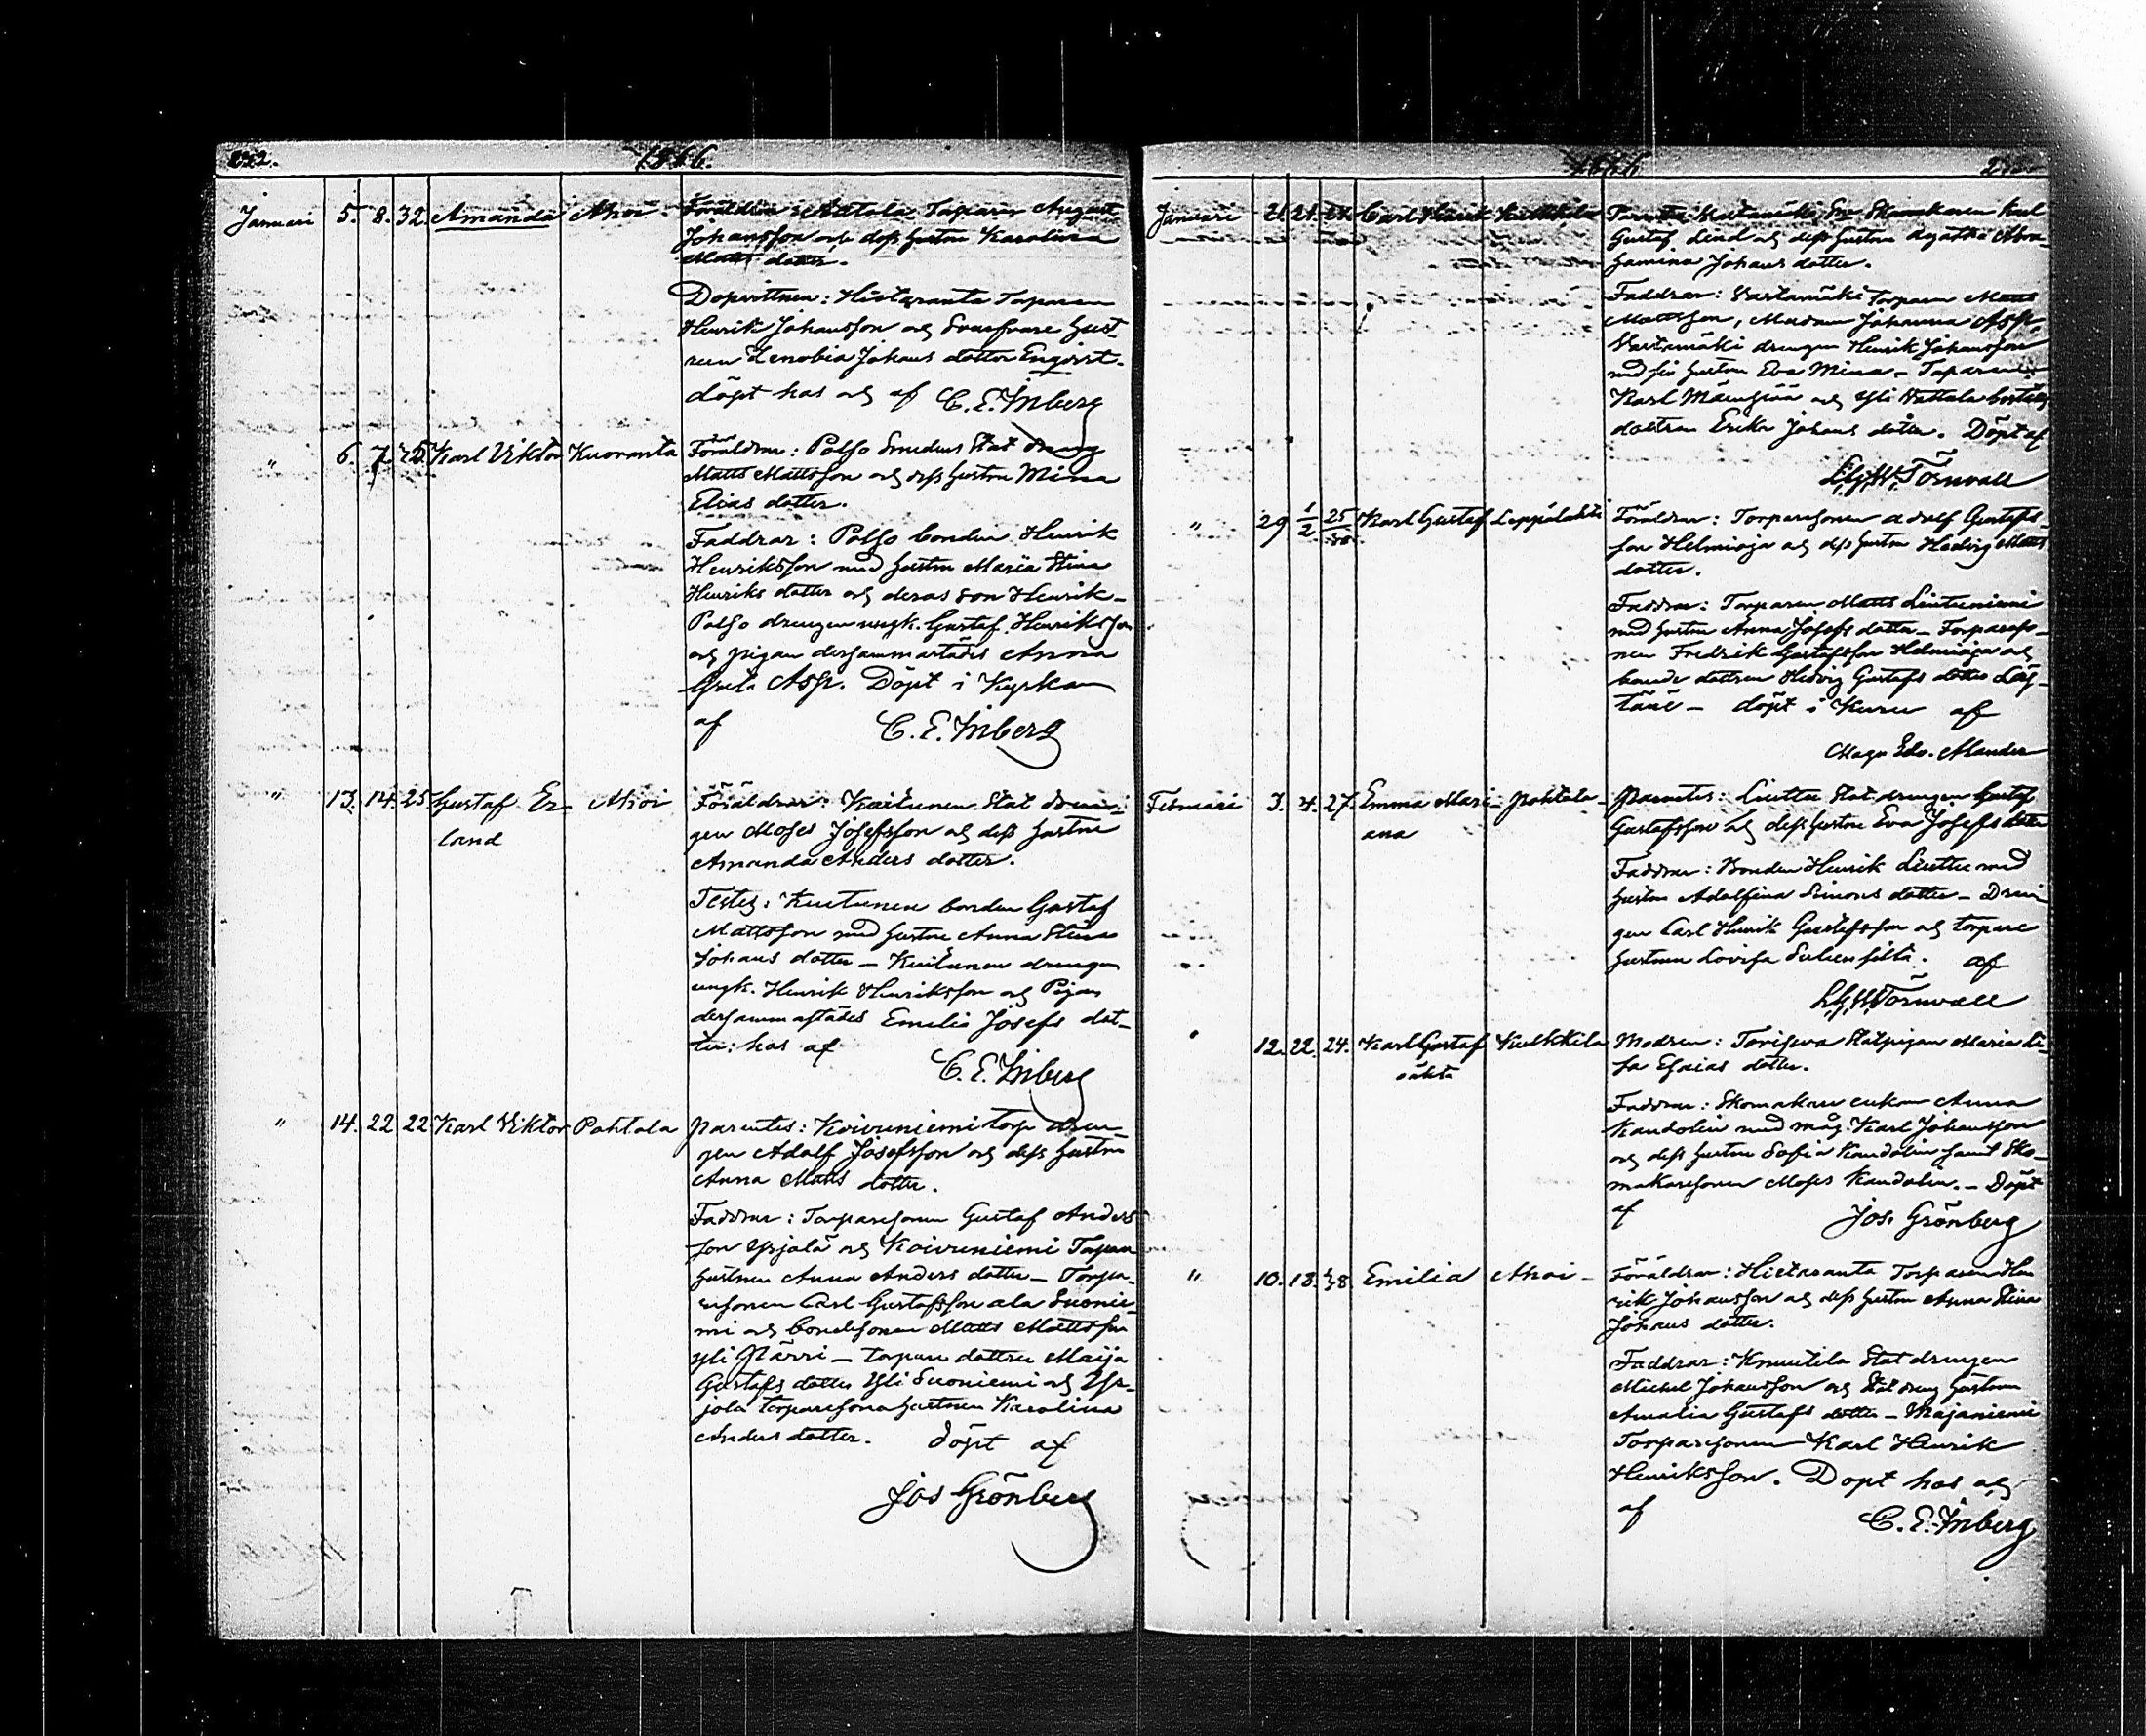 222.
1866.
Januari 5. 8. 32. Amanda Ahoi. Föräldrar: Aatala Torparen August
Johansson och dess hustru Karolina
Matts dotter.
Dopvittnen: Hietaranta Torparen
Henrik Johansson och Svarfvare hust-
run Zenobia Johans dotter Enqvist.
döpt hos och af C. E. Inberg
" 6. 7. 25. Karl Viktor Kuoranta Föräldrar: Polso Smedens Stat dreng
Matts Mattsson och dess hustru Mina
Elias dotter.
Faddrar: Polso bonden Henrik
Henriksson med hustru Maria Stina
Henriks dotter och deras son Henrik –
Polso drengen ungk. Gustaf Henriksson
och pigan dersammastädes Anna
Greta Asp. Döpt i Kyrkan
af C. E. Inberg
" 13. 14. 25 Gustaf Er- Ahoi Föräldrar: Kuitunen Stat dren-
land gen Moses Josefsson och dess hustru
Amanda Anders dotter.
Testes: Kuitunen bonden Gustaf
Mattsson med hustru Anna Stina
Johans dotter – Kuitunen drengen
ungk. Henrik Henriksson och Pigan
dersammastädes Emelie Josefs dot-
ter: hos af
C. E. Inberg
" 14. 22 22 Karl Viktor Pohtola Parentes: Koivuniemi torp dren-
gen Adolf Josefsson och dess hustru
Anna Matts dotter.
Faddrar: Torparesonen Gustaf Anders
son Yrjola och Koivuniemi Torpare
hustrun Anna Anders dotter – Torpa-
resonen Carl Gustafsson ala Suonie-
mi och bondesonen Matts Mattsson
yli Pärri – torpare dottren Maija
Gustafs dotter Yli Suoniemi och Yr-
jola torparesona hustrun Karolina
Anders dotter. döpt af
Jos Grönberg
1866
Januari 21. 21. Carl Henrik Kulkkila
Gustaf Lind och dess hustru Agatha Abra-
hamina Johans dotter.
Faddrar: Vastamäki Torparen Matts
Mattsson, Madam Johanna Asp,
Vastamäki drengen Henrik Johansson
med sin hustru Eva Mina – Torparen
Karl och Yli Nattala
dottren Erika Johans dotter. Döpt af
Törnvall
" 29 1/2 25 Karl Gustaf Leppälahti Föräldrar: Torparesonen Adolf Gustafs-
son Helminoja och dess hustru Hedvig Matts
dotter.
Faddrar: Torparen Matts Lintuniemi
med hustru Anna Josefs dotter – Torpareso-
nen Fredrik Gustafsson Helminoja och
bonde dottren Hedvig Gustafs dotter
döpt i Kuru af
Magn Edv. Alander
Februari 3. 4. 27. Emma Mari- Pohtola – Parentes: Liutta Stat drengen Gustaf
ana Gustafsson och dess hustru Eva Josefs dotter
Faddrar: Bonden Henrik Liutta med
hustru Adolfina Simons dotter – Dren-
gen Carl Henrik Gustafsson och torpare
hustrun Lovisa af
Törnvall
12. 22. 24. Karl Gustaf Kulkkila Modren: Toriseva Statpigan Maria Li-
oäkta sa Esaias dotter.
Faddrar: Skomakare enkan Anna
Kandolin med måg Karl Johansson
och dess hustru Sofia Kandolin samt Sko-
makaresonen Moses Kandolin. – Döpt
af Jos. Grönberg
" 10. 18. 38 Emilia Ahoi – Föräldrar: Hietaranta Torparen Hen
rik Johansson och dess hustru Anna Stina
Johans dotter.
Faddrar: Knuutila Stat drengen
Michel Johansson och Stat dreng hustrun
Amalia Gustafs dotter – Majaniemi
Torparesonen Karl Henrik
Henriksson. Döpt hos och
af C. E. Inberg